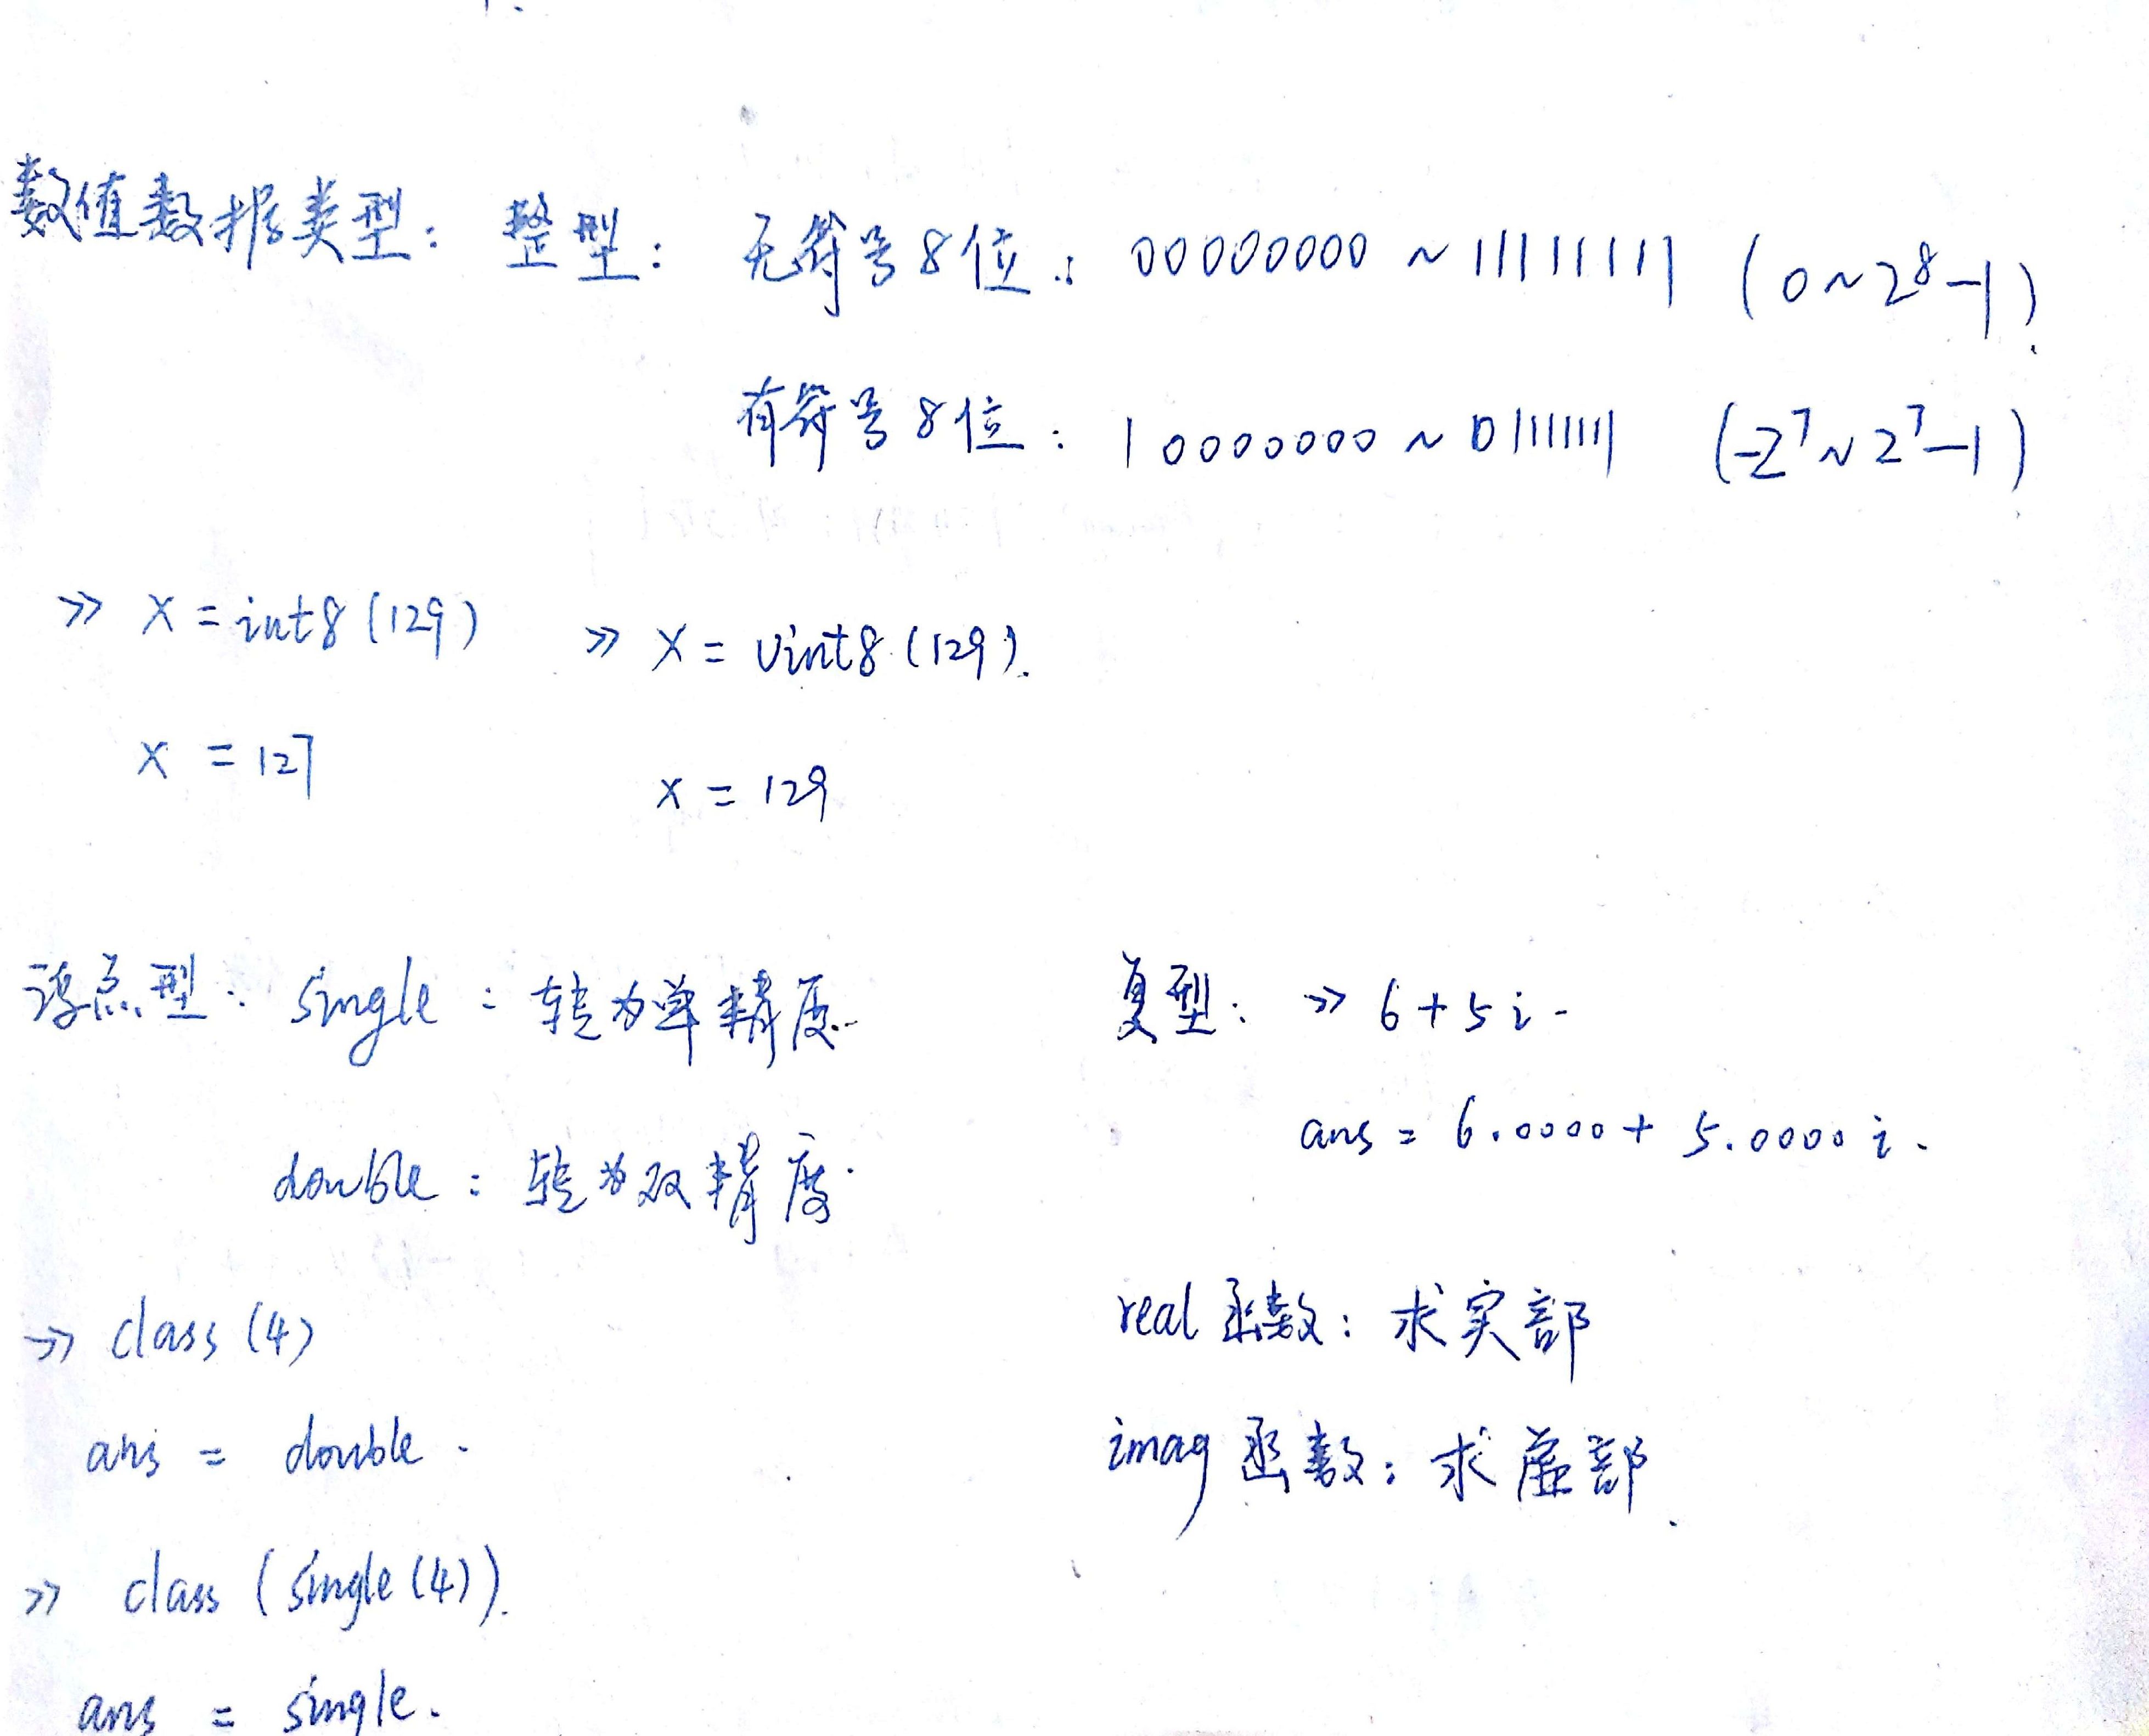 数值数据类型: 整型: 无符号8位: 00000000 ~ 11111111 (0~2⁸-1).
有符号8位: 10000000 ~ 01111111 (-2⁷~2⁷-1)
>> x = int8(129) >> x = uint8(129).
x = 127
x = 129
浮点型: single: 转为单精度.
double: 转为双精度.
>> class(4)
ans = double.
>> class(single(4)).
ans = single.
复型: >> 6+5i.
ans = 6.0000 + 5.0000i.
real函数: 求实部
imag函数: 求虚部.